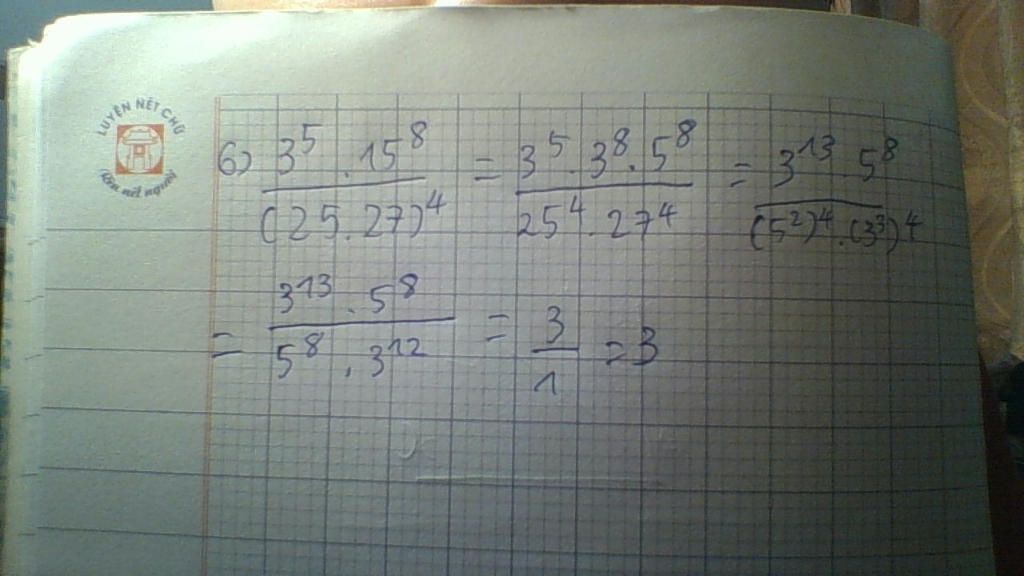 LUYỆN NÉT CHỮ
Rèn nết người
6) 3^5 . 15^8 / (25 . 27)^4 = 3^5 . 3^8 . 5^8 / 25^4 . 27^4 = 3^13 . 5^8 / (5^2)^4 . (3^3)^4
= 3^13 . 5^8 / 5^8 . 3^12 = 3 / 1 = 3